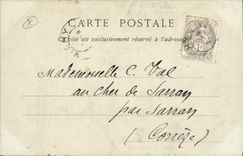 CARTE POSTALE
Ce côté est exclusivement réservé à l'adresse
VICHY
Mademoiselle C. Val
au cher de Sarran
par Sarran
(Corrèze)